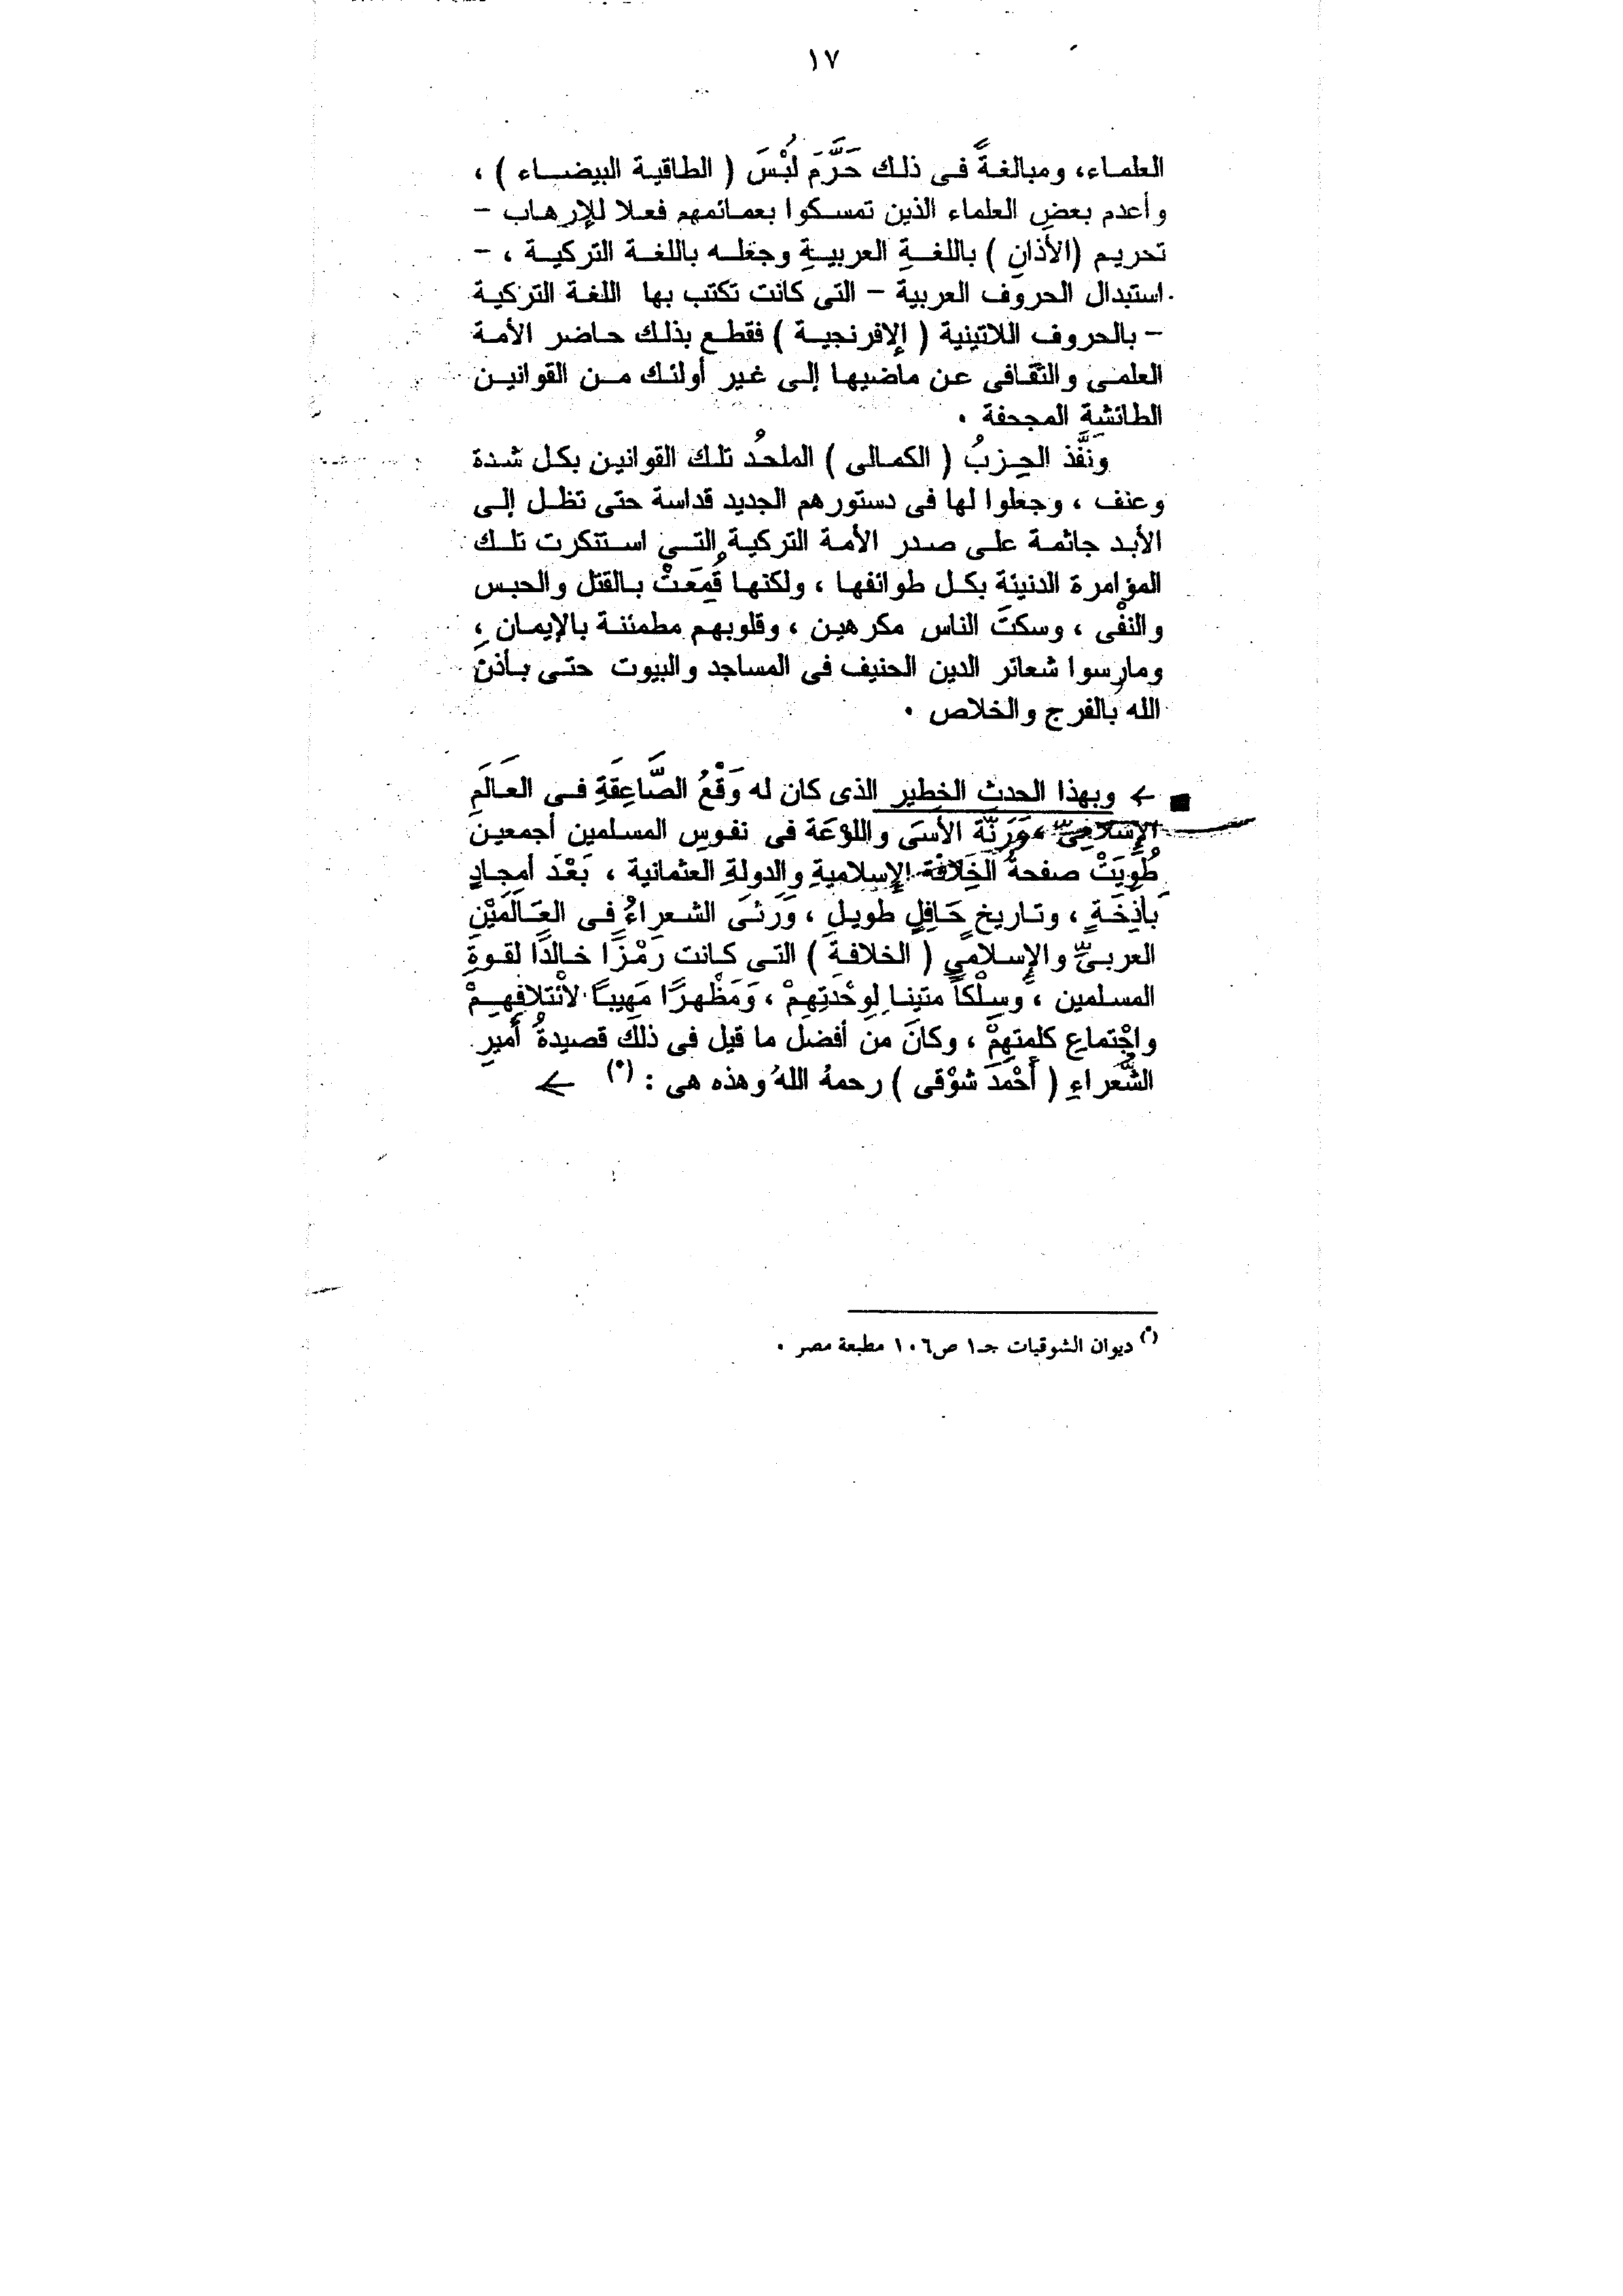 ١٧
العلماء، ومبالغةً فى ذلك حَرَّمَ لُبْسَ ( الطاقية البيضاء ) ،
وأعدم بعض العلماء الذين تمسكوا بعمائمهم فعلا للإرهاب -
تحريم (الأذان ) باللغة العربية وجعله باللغة التركية ، -
استبدال الحروف العربية - التى كانت تكتب بها اللغة التركية
- بالحروف اللاتينية ( الإفرنجية ) فقطع بذلك حاضر الأمة
العلمى والثقافى عن ماضيها إلى غير أولئك من القوانين
الطائشة المجحفة .
ونَفَّذ الحزبُ ( الكمالى ) الملحدُ تلك القوانين بكل شدة
وعنف ، وجعلوا لها فى دستورهم الجديد قداسة حتى تظل إلى
الأبد جاثمة على صدر الأمة التركية التى استنكرت تلك
المؤامرة الدنيئة بكل طوائفها ، ولكنها قُمِعَتْ بالقتل والحبس
والنفْى ، وسكتَ الناس مكرهين ، وقلوبهم مطمئنة بالإيمان ،
ومارسوا شعائر الدين الحنيف فى المساجد والبيوت حتى يأذن
الله بالفرج والخلاص .
← وبهذا الحدث الخطير الذى كان له وَقْعُ الصَّاعِقَةِ فى العَالَمِ
الإسلامِىِّ ، وَرَنَّة الأسَى واللوْعَة فى نفوسِ المسلمين أجمعينَ
طُوِيَتْ صفحةُ الخِلافة الإسلاميةِ والدولةِ العثمانية ، بَعْدَ أمجادٍ
بَاذِخَةٍ ، وتاريخٍ حَافِلٍ طويلٍ ، وَرَثَى الشعراءُ فى العَالَمَيْنِ
العربىِّ والإسلامىِّ ( الخلافةَ ) التى كانت رَمْزًا خالدًا لقوةِ
المسلمين ، وسِلْكاً متينا لِوحْدَتِهِمْ ، وَمَظْهرًا مَهِيبًا لائْتلافِهِمْ
واجْتماعِ كلمتهِمْ ، وكانَ من أفضل ما قيل فى ذلك قصيدةُ أميرِ
الشُّعَراءِ ( أَحْمَدَ شوْقى ) رحمهُ اللهُ وهذه هى : (*) ←
(*) ديوان الشوقيات جـ١ ص١٠٦ مطبعة مصر .